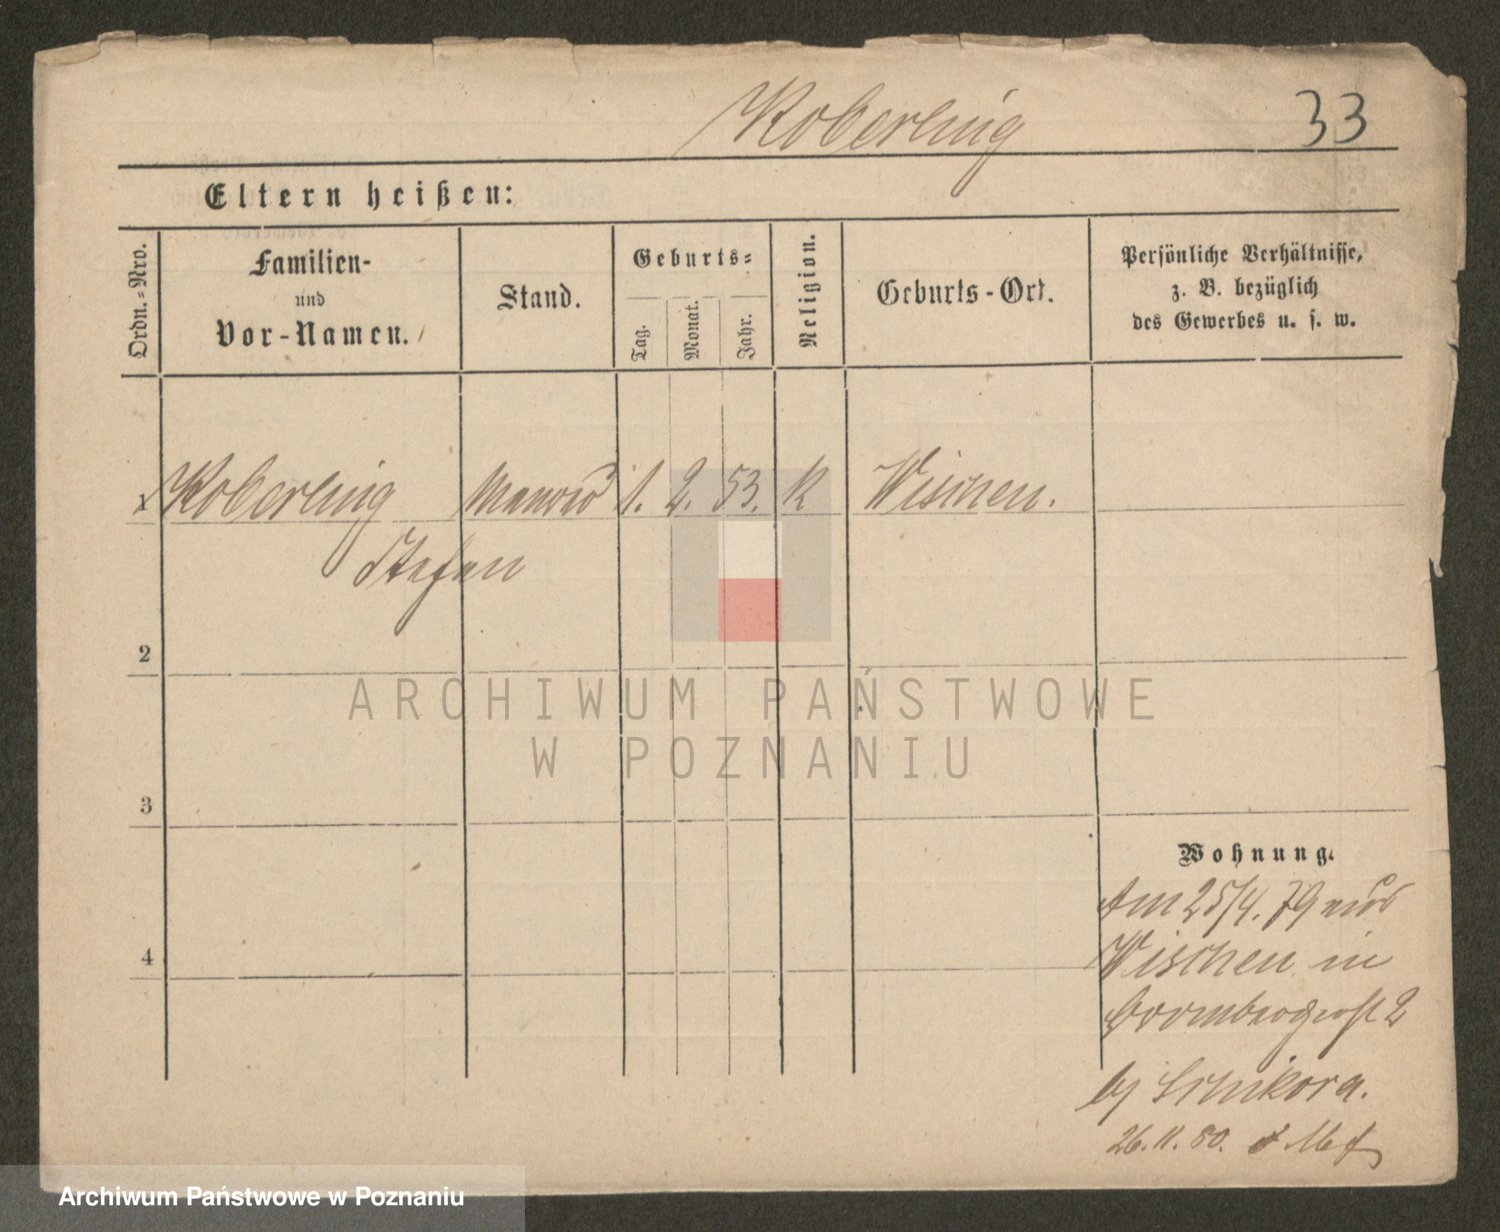 Koberling 33
Eltern heißen:
Ordn.-Nro.
Familien-
und
Vor-Namen.
Stand.
Geburts-
Tag.
Monat.
Jahr.
Religion.
Geburts-Ort.
Persönliche Verhältnisse,
z. B. bezüglich
des Gewerbes u. s. w.
1 Koberling Maurer 1. 2. 53. K Wischen.
Stefan
2
ARCHIWUM PAŃSTWOWE
W POZNANIU
3
Wohnung.
Am 25/4. 79 aus
4
Wischen in
2
by
26.11.80.
Archiwum Państwowe w Poznaniu